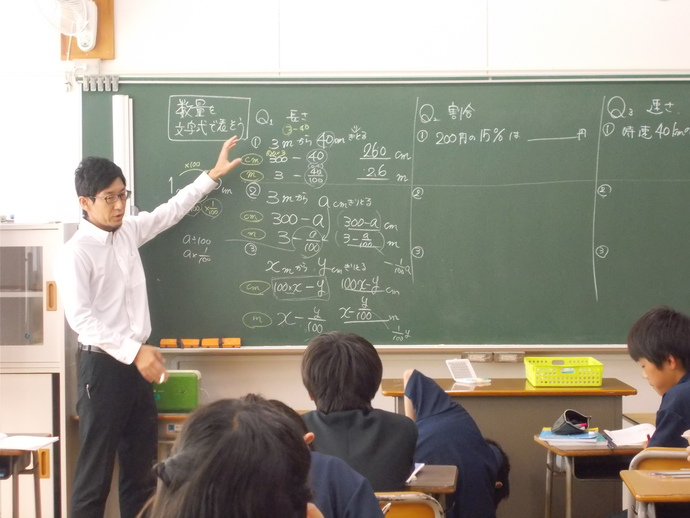 数量を
文字式で表そう
×100
1 m
×1/100
a÷100
a×1/100
Q1 長さ
3-40
① 3mから40cmきりとる
cm 300 - 40 260 cm
m 3 - 40/100 2.6 m
② 3mから a cmきりとる
cm 300-a 300-a cm
m 3-a/100 3-a/100 m
-1/100 a
③ x mから y cmきりとる
cm 100×x-y 100x-y cm
m x-y/100 x-y/100 m
1/100 y
Q2 割合
① 200円の15%は 円
②
③
Q3 速さ
① 時速40kmの
②
③